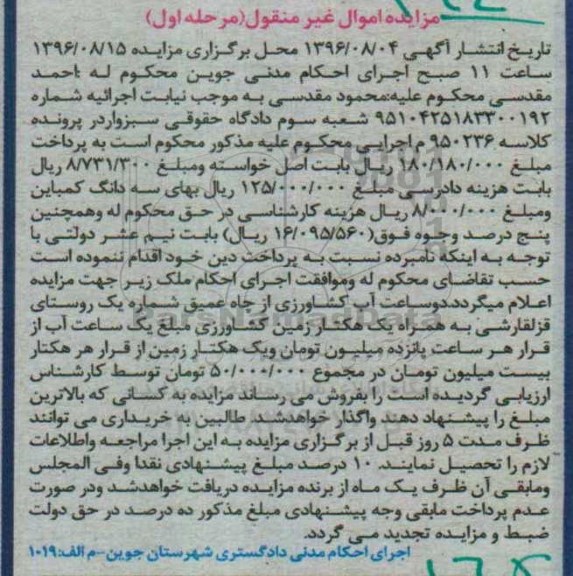 مزایده اموال غیر منقول(مرحله اول)
تاریخ انتشار آگهی ۱۳۹۶/۰۸/۰۴ محل برگزاری مزایده ۱۳۹۶/۰۸/۱۵
ساعت ۱۱ صبح اجرای احکام مدنی جوین محکوم له :احمد
مقدسی محکوم علیه:محمود مقدسی به موجب نیابت اجرائیه شماره
۹۵۱۰۴۲۵۱۸۳۳۰۰۱۹۲ شعبه سوم دادگاه حقوقی سبزواردر پرونده
کلاسه ۹۵۰۲۳۶ م اجرایی محکوم علیه مذکور محکوم است به پرداخت
مبلغ ۱۸۰/۱۸۰/۰۰۰ ریال بابت اصل خواسته ومبلغ ۸/۷۳۱/۳۰۰ ریال
بابت هزینه دادرسی مبلغ ۱۲۵/۰۰۰/۰۰۰ ریال بهای سه دانگ کمباین
ومبلغ ۸/۰۰۰/۰۰۰ ریال هزینه کارشناسی در حق محکوم له وهمچنین
پنج درصد وجوه فوق(۱۶/۰۹۵/۵۶۰ ریال) بابت نیم عشر دولتی با
توجه به اینکه نامبرده نسبت به پرداخت دین خود اقدام ننموده است
حسب تقاضای محکوم له وموافقت اجرای احکام ملک زیر جهت مزایده
اعلام میگردد.دوساعت آب کشاورزی از چاه عمیق شماره یک روستای
قزلقارشی به همراه یک هکتار زمین کشاورزی مبلغ یک ساعت آب از
قرار هر ساعت پانزده میلیون تومان ویک هکتار زمین از قرار هر هکتار
بیست میلیون تومان در مجموع ۵۰/۰۰۰/۰۰۰ تومان توسط کارشناس
ارزیابی گردیده است را بفروش می رساند مزایده به کسانی که بالاترین
مبلغ را پیشنهاد دهند واگذار خواهدشد طالبین به خریداری می توانند
ظرف مدت ۵ روز قبل از برگزاری مزایده به این اجرا مراجعه واطلاعات
لازم را تحصیل نمایند. ۱۰ درصد مبلغ پیشنهادی نقدا وفی المجلس
ومابقی آن ظرف یک ماه از برنده مزایده دریافت خواهدشد ودر صورت
عدم پرداخت مابقی وجه پیشنهادی مبلغ مذکور ده درصد در حق دولت
ضبط و مزایده تجدید می گردد.
اجرای احکام مدنی دادگستری شهرستان جوین-م الف:۱۰۱۹